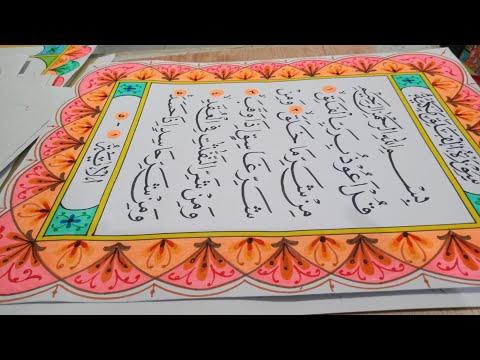 سورة الفلق مكية
بِسْمِ اللهِ الرَّحْمٰنِ الرَّحِيْمِ
قُلْ أَعُوْذُ بِرَبِّ الْفَلَقِ ١
مِنْ شَرِّ مَا خَلَقَ ٢ وَمِنْ
شَرِّ غَاسِقٍ إِذَا وَقَبَ ٣
وَمِنْ شَرِّ النَّفّٰثٰتِ فِى الْعُقَدِ ٤
وَمِنْ شَرِّ حَاسِدٍ إِذَا حَسَدَ ٥
١ - ٥